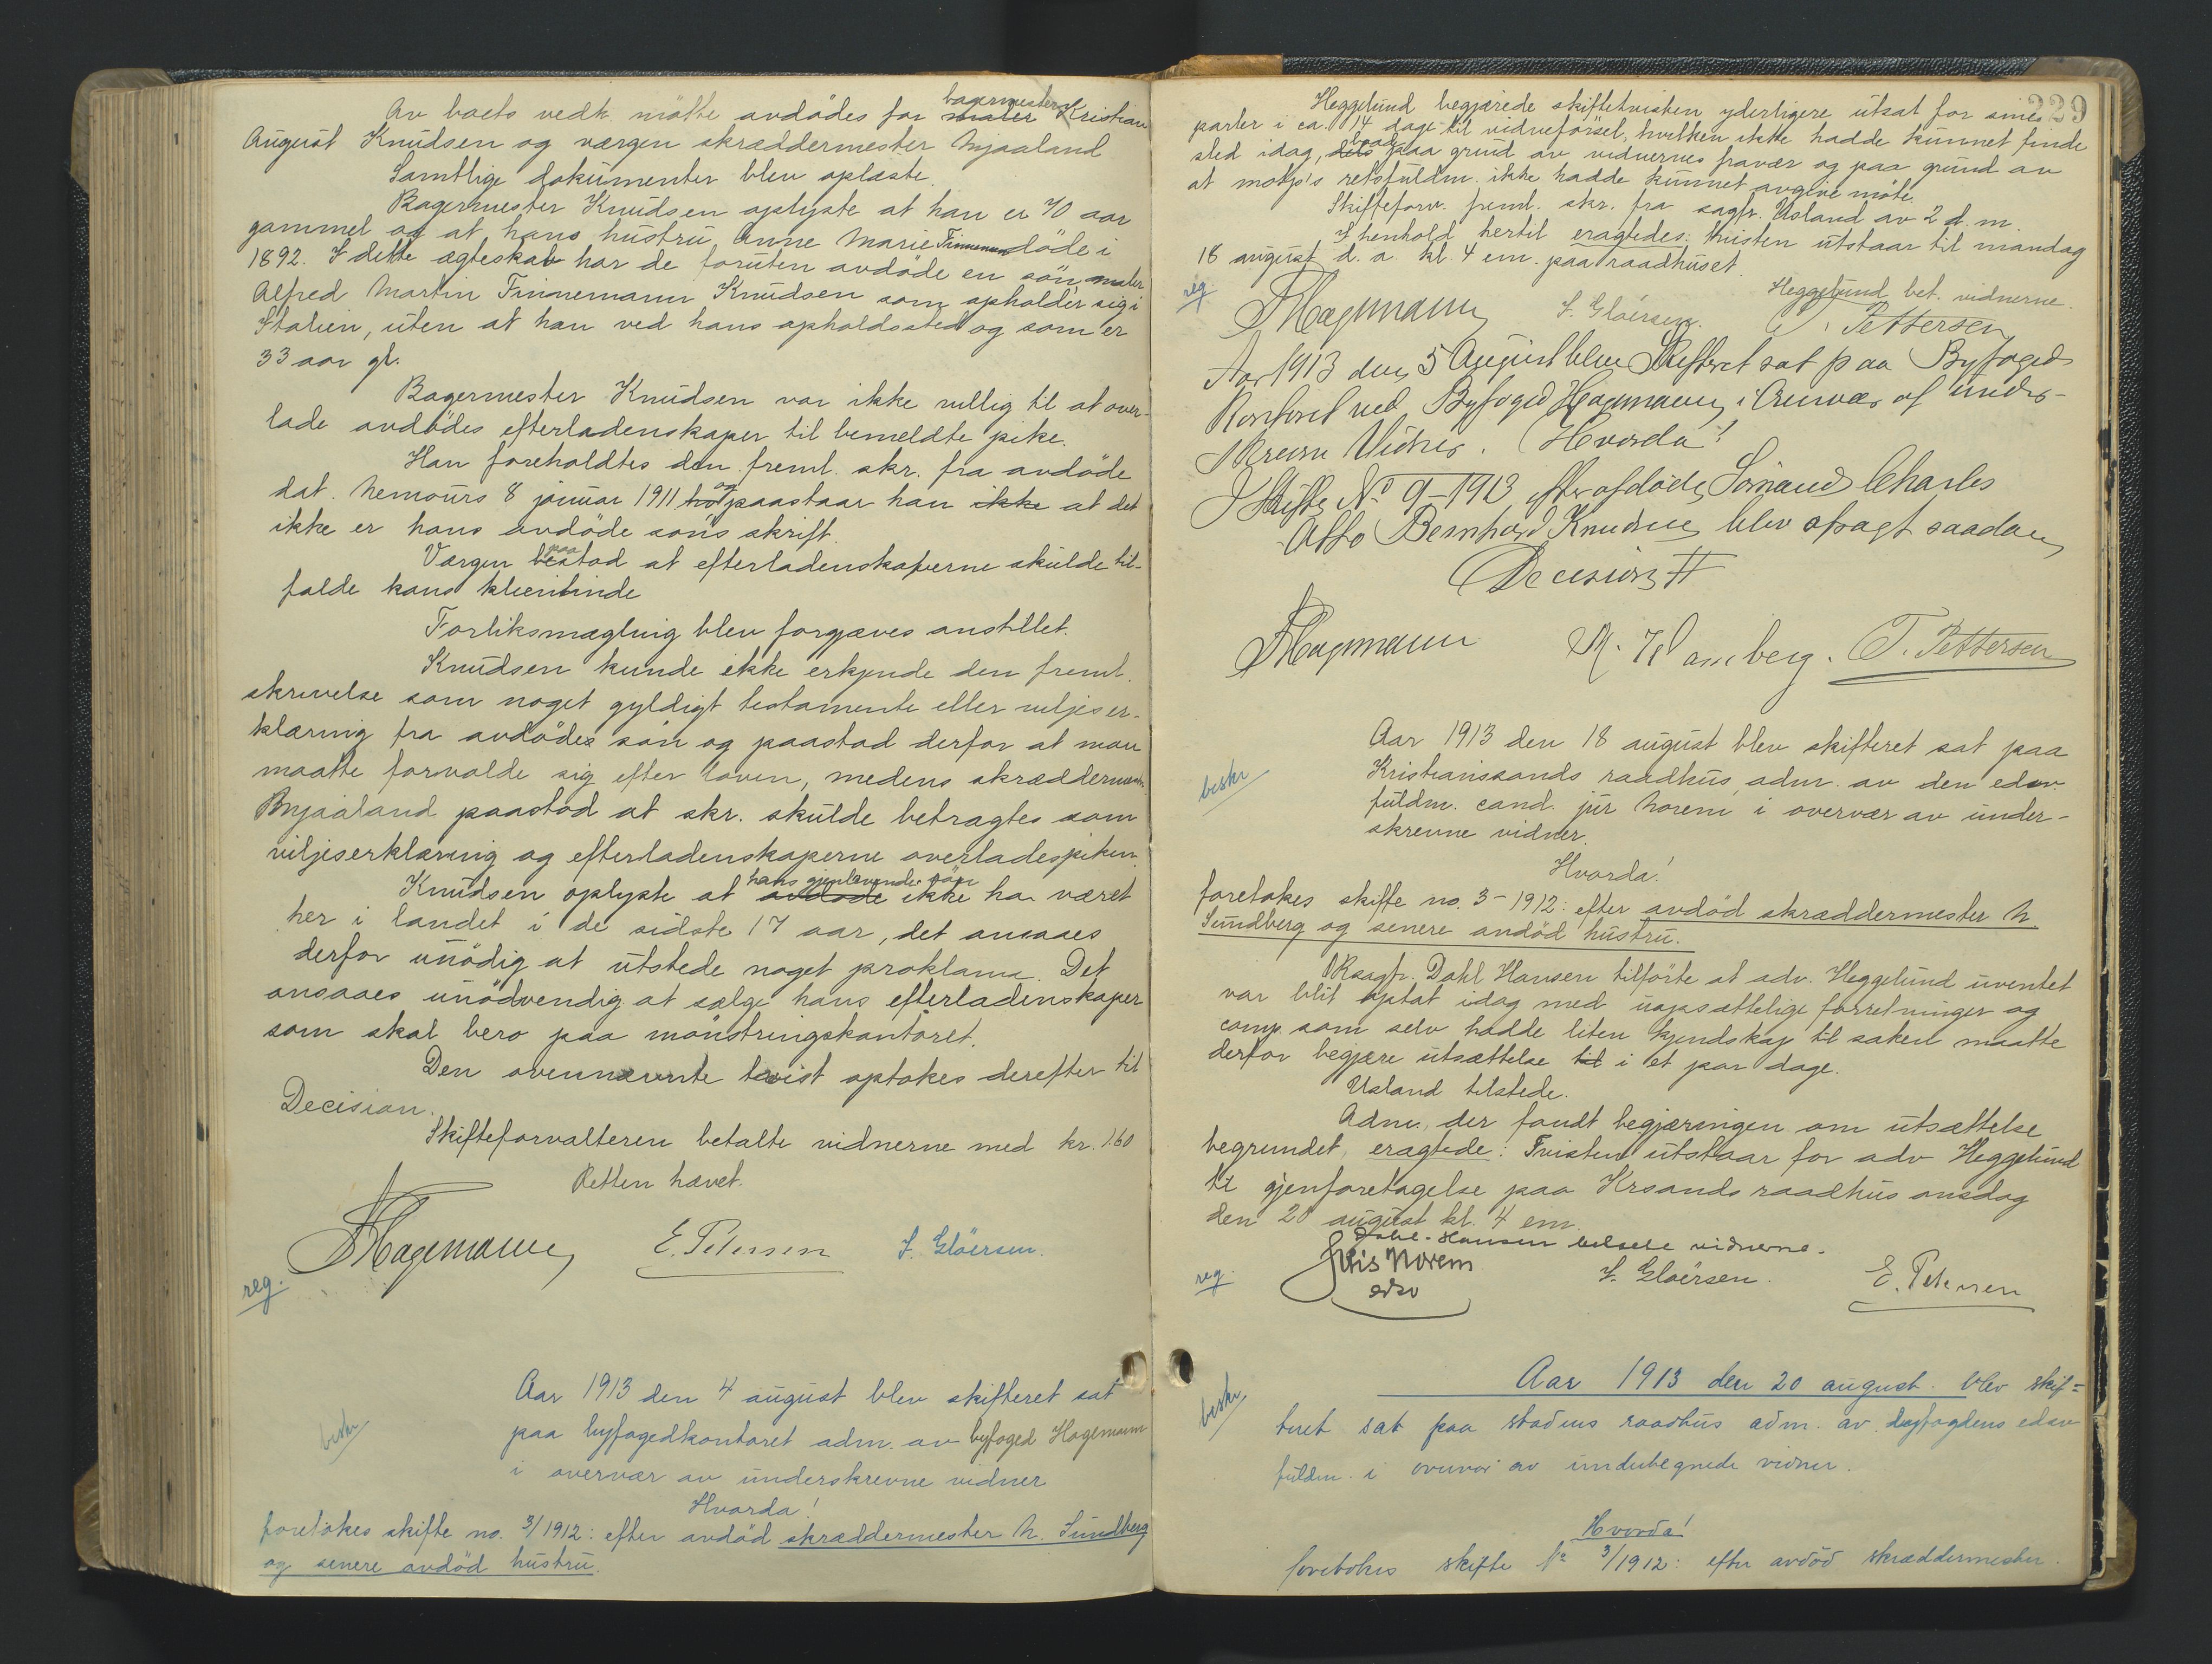 Av boets vedk. mötte avdödes far maler bagermester Kristian
August Knudsen og værgen skræddermester Mjaaland
Samtlige dokumenter blev oplæste.
Bagermester Knudsen oplyste at han er 70 aar
gammel og at hans hustru Anne Marie Finneman döde i
1892. I dette ægteskab har de foruten avdöde en sön, maler
Alfred Martin Finnemann Knudsen som opholder sig i
Italien, uten at han ved hans opholdssted og som er
33 aar gl.
Bagermester Knudsen var ikke villig til at over-
lade avdödes efterladenskaper til bemeldte pike.
Han foreholdtes den freml. skr. fra avdöde
dat. Nemours 8 januar 1911 og paastaar han ikke at det
ikke er hans avdöde söns skrift.
Værgen paastod at efterladenskaperne skulde til-
falde hans klientinde
Forliksmægling blev forgjæves anstillet.
Knudsen kunde ikke erkjende den freml.
skrivelse som noget gyldigt testamente eller viljeser-
klæring fra avdödes sön og paastod derfor at man
maatte forvolde sig efter loven, medens skræddermester
Mjaaland paastod at skr. skulde betragtes som
viljeserklæring og efterladenskaperne overlades piken.
Knudsen oplyste at avdöde hans gjenlevende sön ikke har været
her i landet i de sidste 17 aar, det ansaaes
derfor unödig at utstede noget proklama. Det
ansaaes unödvendig at sælge hans efterladenskaper
som skal bero paa mönstringskontoret.
Den ovennævnte tvist optokes derefter til
Decision.
Skifteforvalteren betalte vidnerne med kr. 1.60
Retten hævet.
Hagemann E. Petersen S. Glöersen.
reg.
Aar 1913 den 4 august blev skifteret sat
paa byfogedkontoret adm. av byfoged Hagemann
beskr
i overvær av underskrevne vidner
Hvorda!
foretokes skifte no. 3/1912: efter avdöd skræddermester N. Sundberg
og senere avdöd hustru.
229
Heggelund begjærede skiftetvisten yderligere utsat for sine
parter i ca. 14 dage til vidneförsel, hvilken ikke hadde kunnet finde
sted idag, dels baade paa grund av vidnernes fravær og paa grund av
at motp's retsfuldm. ikke hadde kunnet avgive möte.
Skifteforv. freml. skr. fra sagfr. Usland av 2 d. m.
I henhold hertil eragtedes: tvisten utstaar til mandag
18 august d. a. kl. 4 em. paa raadhuset.
Heggelund bet. vidnerne.
reg
Hagemann S. Glöersen. T. Pettersen
Aar 1913 den 5 August blev Skifteret sat paa Byfoged
Kontoret ved Byfoged Hagemann i Overvær af under-
skrevne Vidner. Hvorda!
I Skifte No 9-1913 efter afdöde Sömand Charles
Otto Bernhard Knudsen blev afsagt saadan
Decision #
Hagemann T. Pettersen
Aar 1913 den 18 august blev skifteret sat paa
Kristianssands raadhus, adm. av den edsv.
beskr
fuldm. cand. jur Norem i overvær av under-
skrevne vidner.
Hvorda!
foretokes skifte no. 3-1912: efter avdöd skræddermester N.
Sundberg og senere avdöd hustru.
ORsagfr. Dahl Hansen tilförte at adv. Heggelund uventet
var blit optat idag med uopsættelige forretninger og
comp. som selv hadde liten kjendskap til saken maatte
derfor begjære utsættelse til i et par dage.
Usland tilstede.
Adm., der fandt begjæringen om utsættelse
begrundet, eragtede: Tvisten utstaar for adv Heggelund
til gjenforetagelse paa Krsands raadhus onsdag
den 20 august kl. 4 em.
Dahl-Hansen betalte vidnerne.
reg.
Norem S. Glöersen. E. Petersen
edsv
Aar 1913 den 20 august blev skif=
beskr
teret sat paa stadens raadhus adm. av byfogdens edsv
fuldm. i overvær av undertegnede vidner.
Hvorda!
foretokes skifte No 3/1912: efter avdöd skræddermester